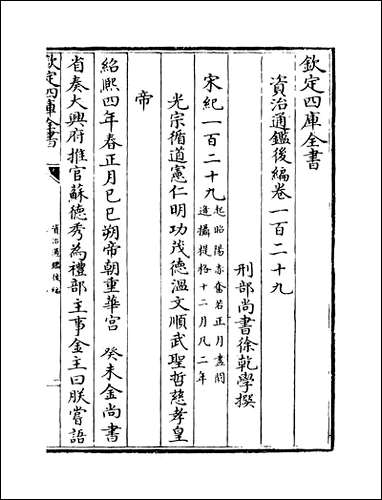 欽定四庫全書
資治通鑑後編卷一百二十九
刑部尚書徐乾學撰
宋紀一百二十九起昭陽赤奮若正月盡閼逢攝提格十二月凡二年
光宗循道憲仁明功茂德溫文順武聖哲慈孝皇
帝
紹熙四年春正月己巳朔帝朝重華宮 癸未金尚書
省奏大興府推官蘇德秀為禮部主事金主曰朕嘗語
欽定四庫全書
資治通鑑後編
一